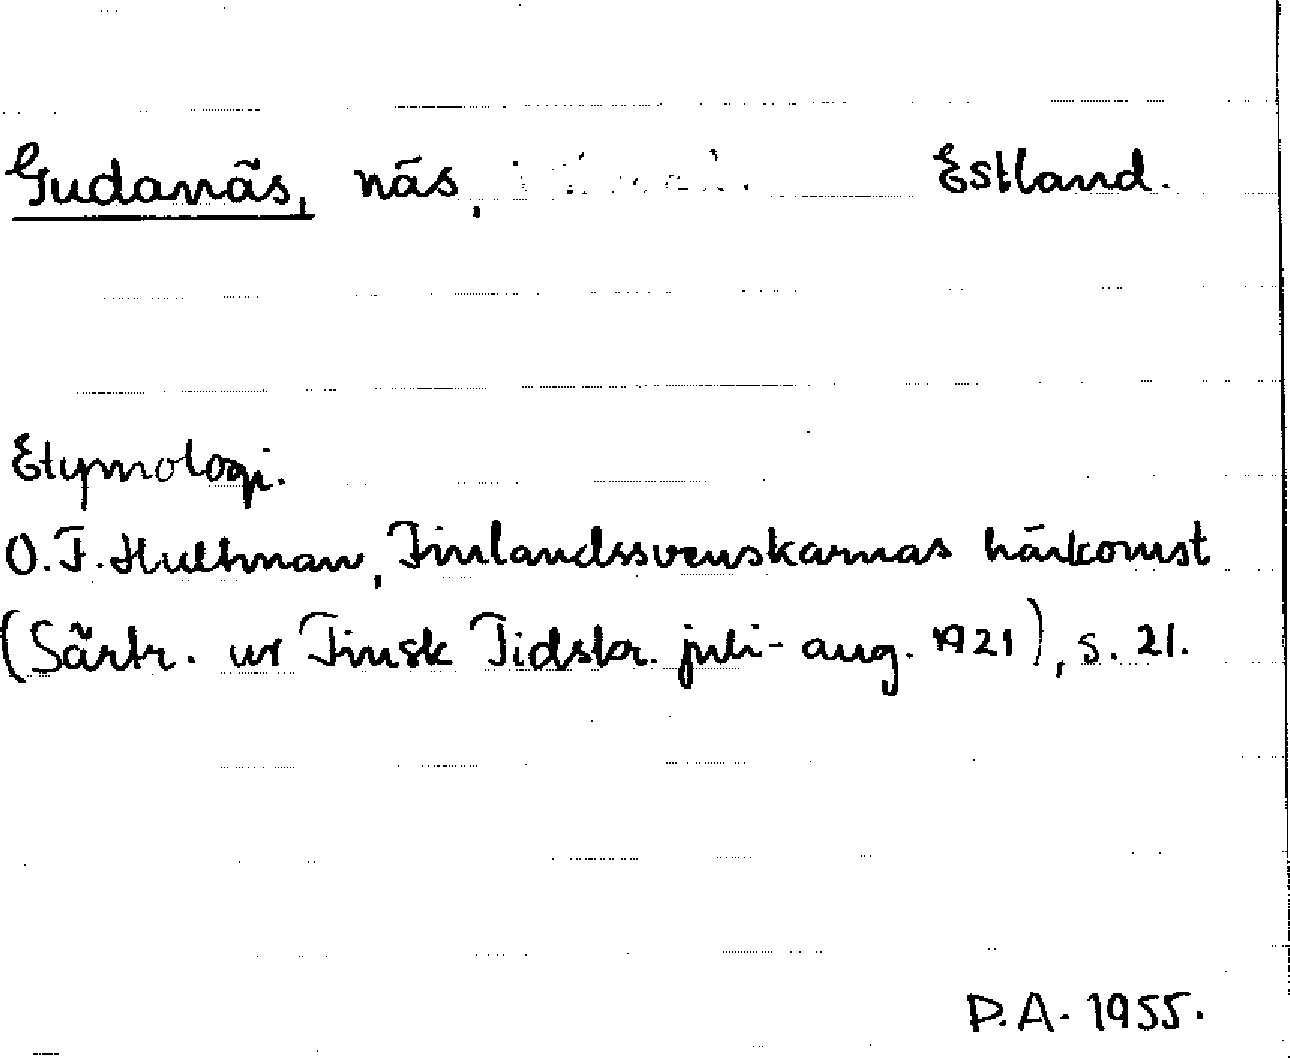 Gudanäs, näs, Estland.
Etymologi.
O.F. Hultman, Finlandssvenskarnas härkomst
(Särtr. ur Finsk Tidskr. juli-aug. 1921), s. 21.
P.A. 1955.